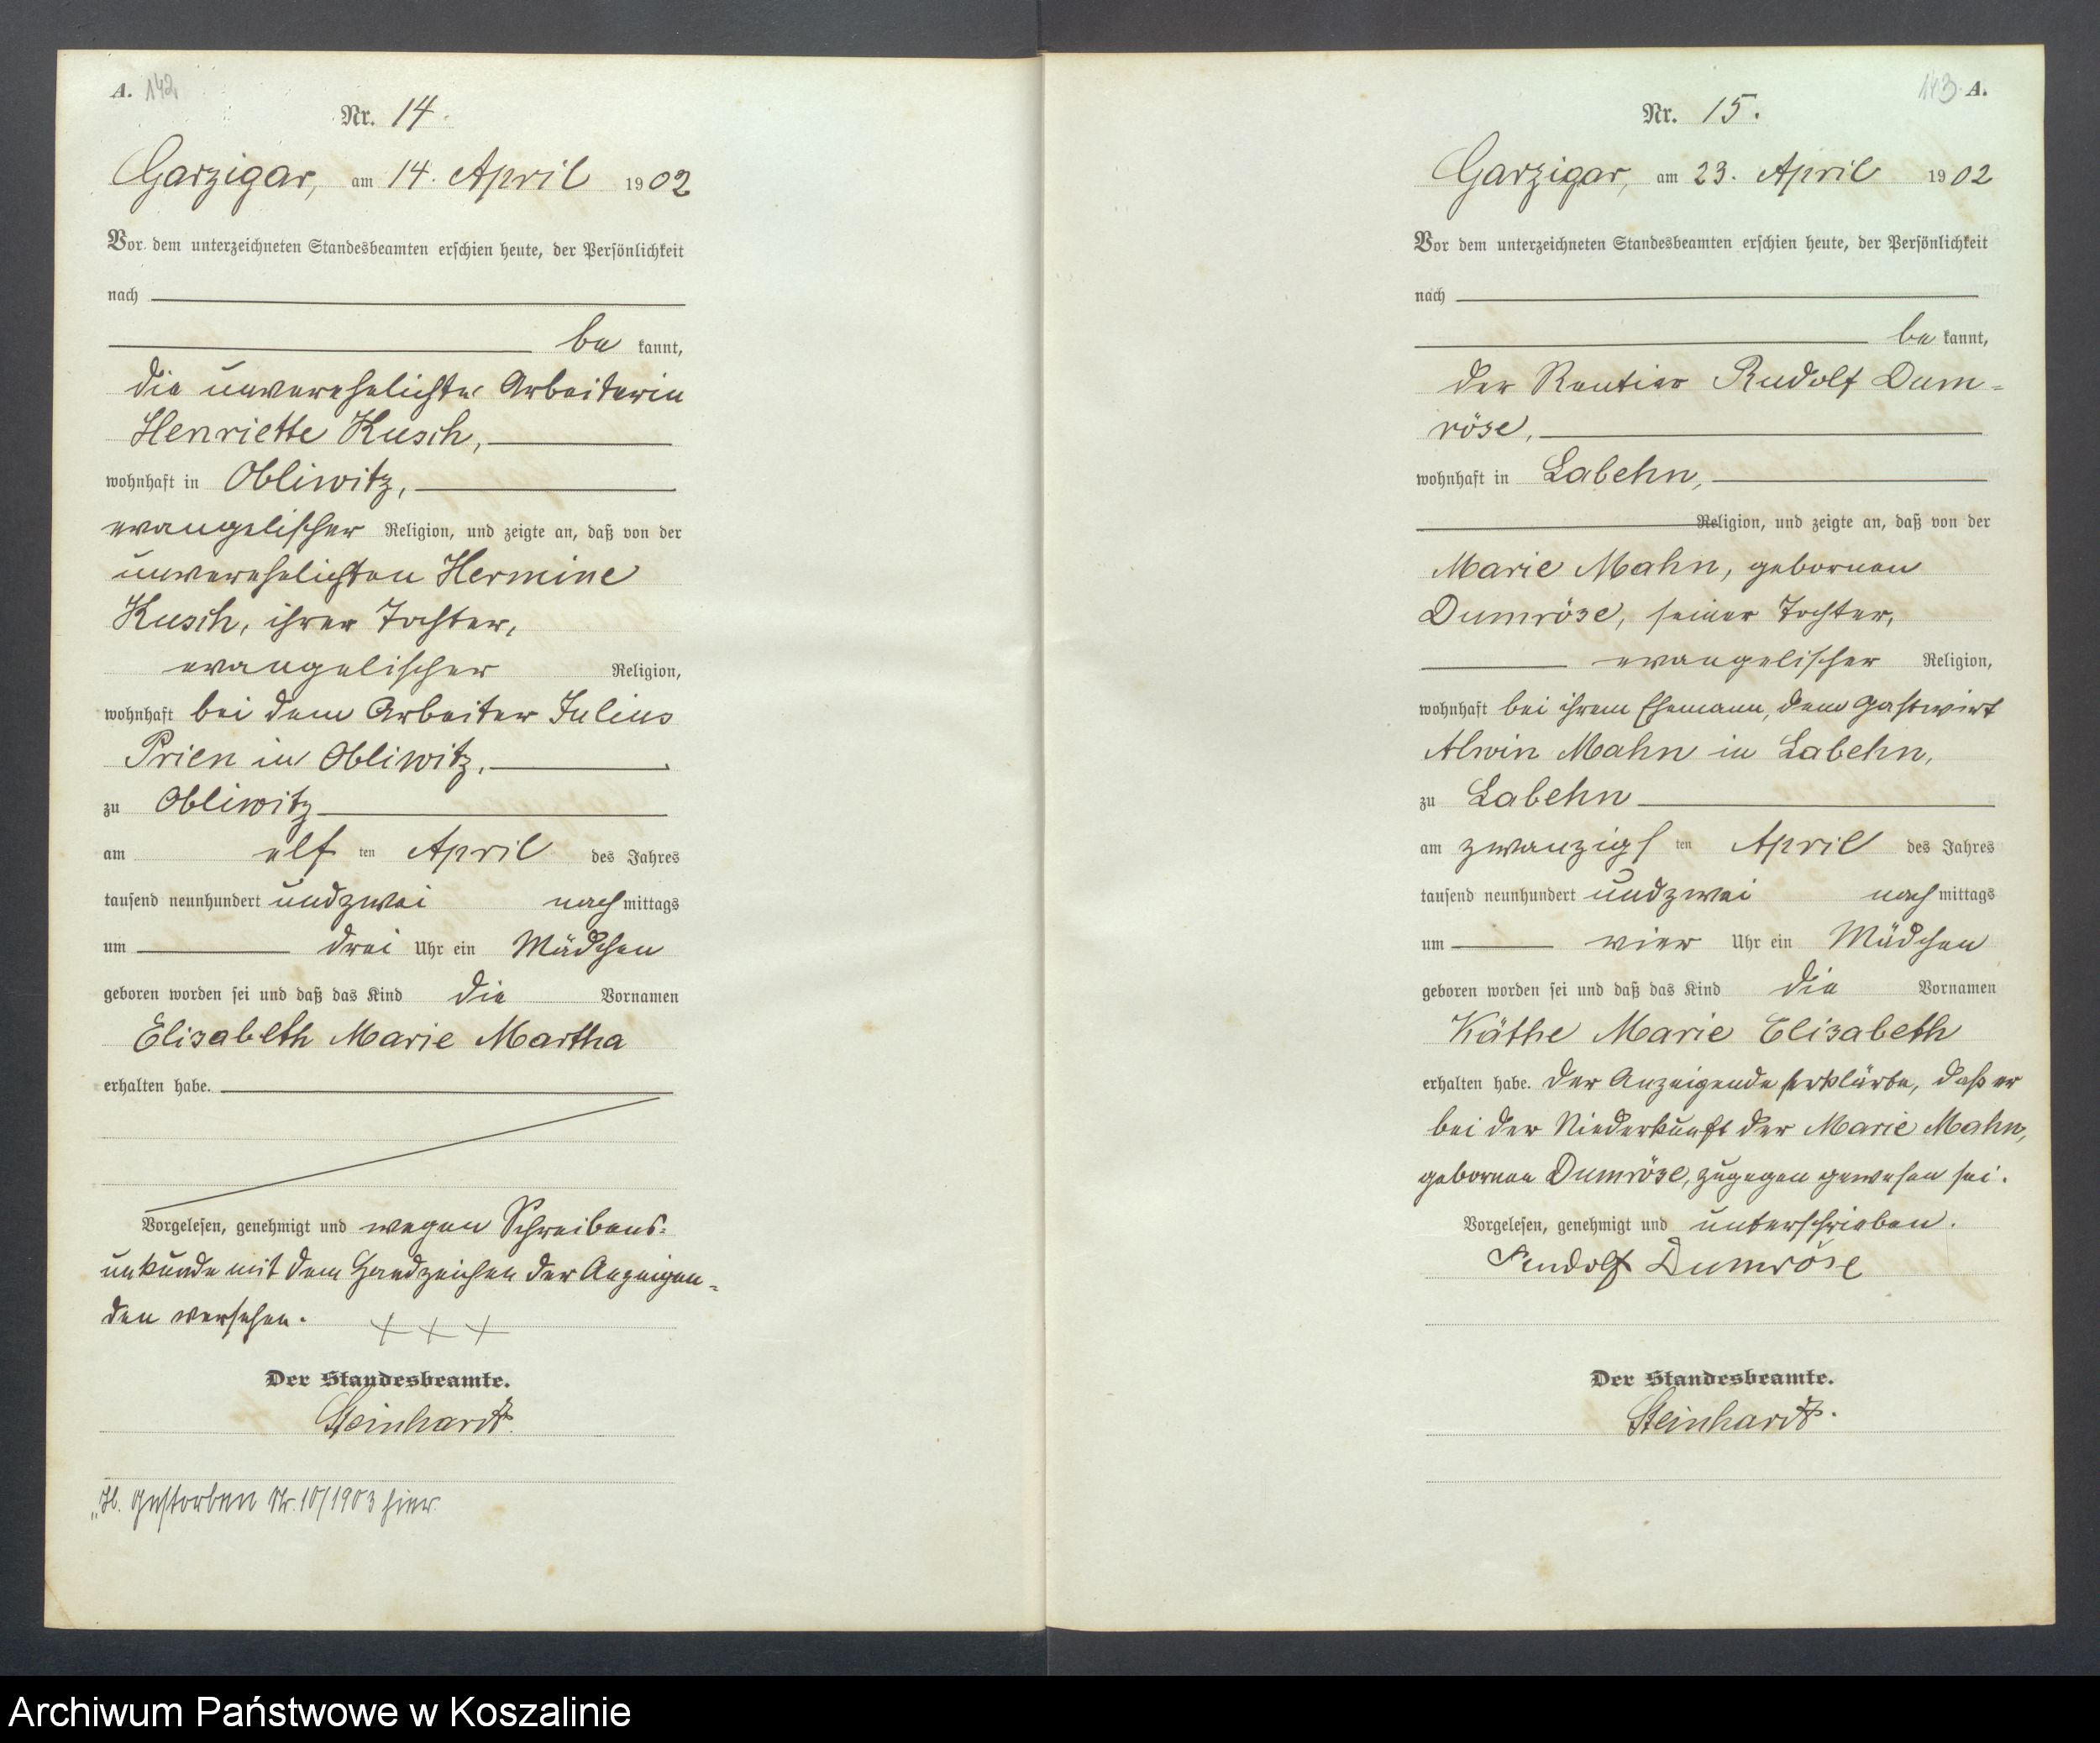 A. 142
Nr. 14.
Garzigar, am 14. April 1902
Vor dem unterzeichneten Standesbeamten erschien heute, der Persönlichkeit
nach
be kannt,
die unverehelichte Arbeiterin
Henriette Kusch,
wohnhaft in Obliwitz,
evangelischer Religion, und zeigte an, daß von der
unverehelichten Hermine
Kusch, ihrer Tochter,
evangelischer Religion,
wohnhaft bei dem Arbeiter Julius
Prien in Obliwitz,
zu Obliwitz
am elf ten April des Jahres
tausend neunhundert und zwei nach mittags
um drei Uhr ein Mädchen
geboren worden sei und daß das Kind die Vornamen
Elisabeth Marie Martha
erhalten habe.
Vorgelesen, genehmigt und wegen Schreibens-
unkunde mit dem Handzeichen der Anzeigen-
den versehen. + + +
Der Standesbeamte.
Steinhardt.
gestorben Nr. 10/1903 hier.
143 A.
Nr. 15.
Garzigar, am 23. April 1902
Vor dem unterzeichneten Standesbeamten erschien heute, der Persönlichkeit
nach
be kannt,
der Rentier Rudolf Dum-
röse,
wohnhaft in Labehn,
Religion, und zeigte an, daß von der
Marie Mahn, gebornen
Dumröse, seiner Tochter,
evangelischer Religion,
wohnhaft bei ihrem Ehemann, dem Gastwirt
Alwin Mahn in Labehn,
zu Labehn
am zwanzigs ten April des Jahres
tausend neunhundert und zwei nach mittags
um vier Uhr ein Mädchen
geboren worden sei und daß das Kind die Vornamen
Käthe Marie Elisabeth
erhalten habe. Der Anzeigende erklärte, daß er
bei der Niederkunft der Marie Mahn,
gebornen Dumröse, zugegen gewesen sei.
Vorgelesen, genehmigt und unterschrieben.
Rudolf Dumröse
Der Standesbeamte.
Steinhardt.
Archiwum Państwowe w Koszalinie